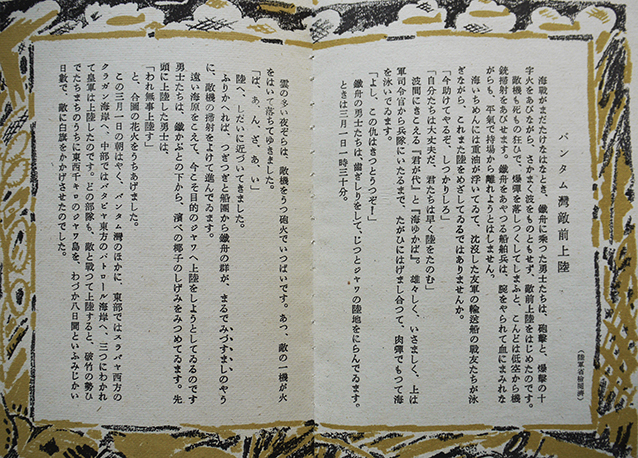 バンタム灣敵前上陸
(陸軍省檢閲濟)
海戰がまだたけなはなとき、鐵舟に乘つた勇士たちは、砲擊と、爆擊の十
字火をあびながら、さかまく波をものともせず、敵前上陸をはじめたのです。
敵機も死もの狂ひで、爆彈を落しつくしてしまふと、こんどは低空から機
銃掃射をあびせます。鐵舟をあやつる船舶兵は、腕をやられて血にまみれな
がらも、平氣で持場から離れようとはしません。
海いちめんには重油が浮いてゐて、沈沒した友軍の輸送船の戰友たちが泳
ぎながら、これまた陸をめざしてゐるではありませんか。
「今助けてやるぞ、しつかりしろ」
「自分たちは大丈夫だ、君たちは早く陸をたのむ」
波間にきこえる『君が代』と『海ゆかば』。雄々しく、いさましく、上は
軍司令官から兵隊にいたるまで、たがひにはげまし合つて、肉彈でもつて海
を泳いでゐます。
「よし、この仇はきつとうつぞ!」
鐵舟の勇士たちは、齒ぎしりをして、じつとジャワの陸地をにらんでゐます。
ときは三月一日一時三十分。
雲の多い夜ぞらは、敵機をうつ砲火でいつぱいです。あつ、敵の一機が火
をはいて落ちてゆきました。
「ば、あ、ん、ざ、あ、い」
陸へ、しだいに近づいてきました。
ふりかへれば、つぎつぎと船團から鐵舟の群が、まるでみづすましのやう
に、敵機の掃射をよけて進んでゐます。
遠い海原をこえて、今こそ目的のジャワへ上陸をしようとしてゐるのです
勇士たちは、鐵かぶとの下から、濱べの椰子のしげみをみつめてゐます。先
頭に上陸した勇士は、
「われ無事上陸す」
と、合圖の花火をうちあげました。
この三月一日の朝はやく、バンタム灣のほかに、東部ではスラバヤ西方の
クラガン海岸へ、中部ではバタビヤ東方のパトロール海岸へ、三つにわかれ
て皇軍は上陸したのです。どの部隊も、敵と戰つて上陸すると、破竹の勢ひ
でたちまちのうちに東西千キロのジャワ島を、わづか八日間といふみじかい
日數で、敵に白旗をかかげさせたのでした。